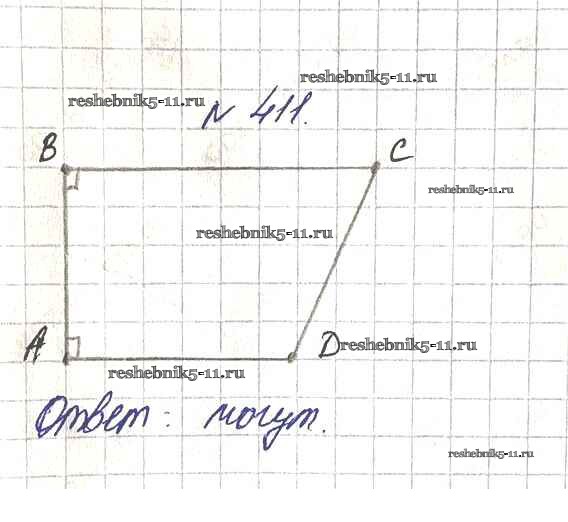 reshebnik5-11.ru
reshebnik5-11.ru
№ 411.
B
C
reshebnik5-11.ru
reshebnik5-11.ru
A
D
reshebnik5-11.ru
reshebnik5-11.ru
Ответ: могут.
reshebnik5-11.ru